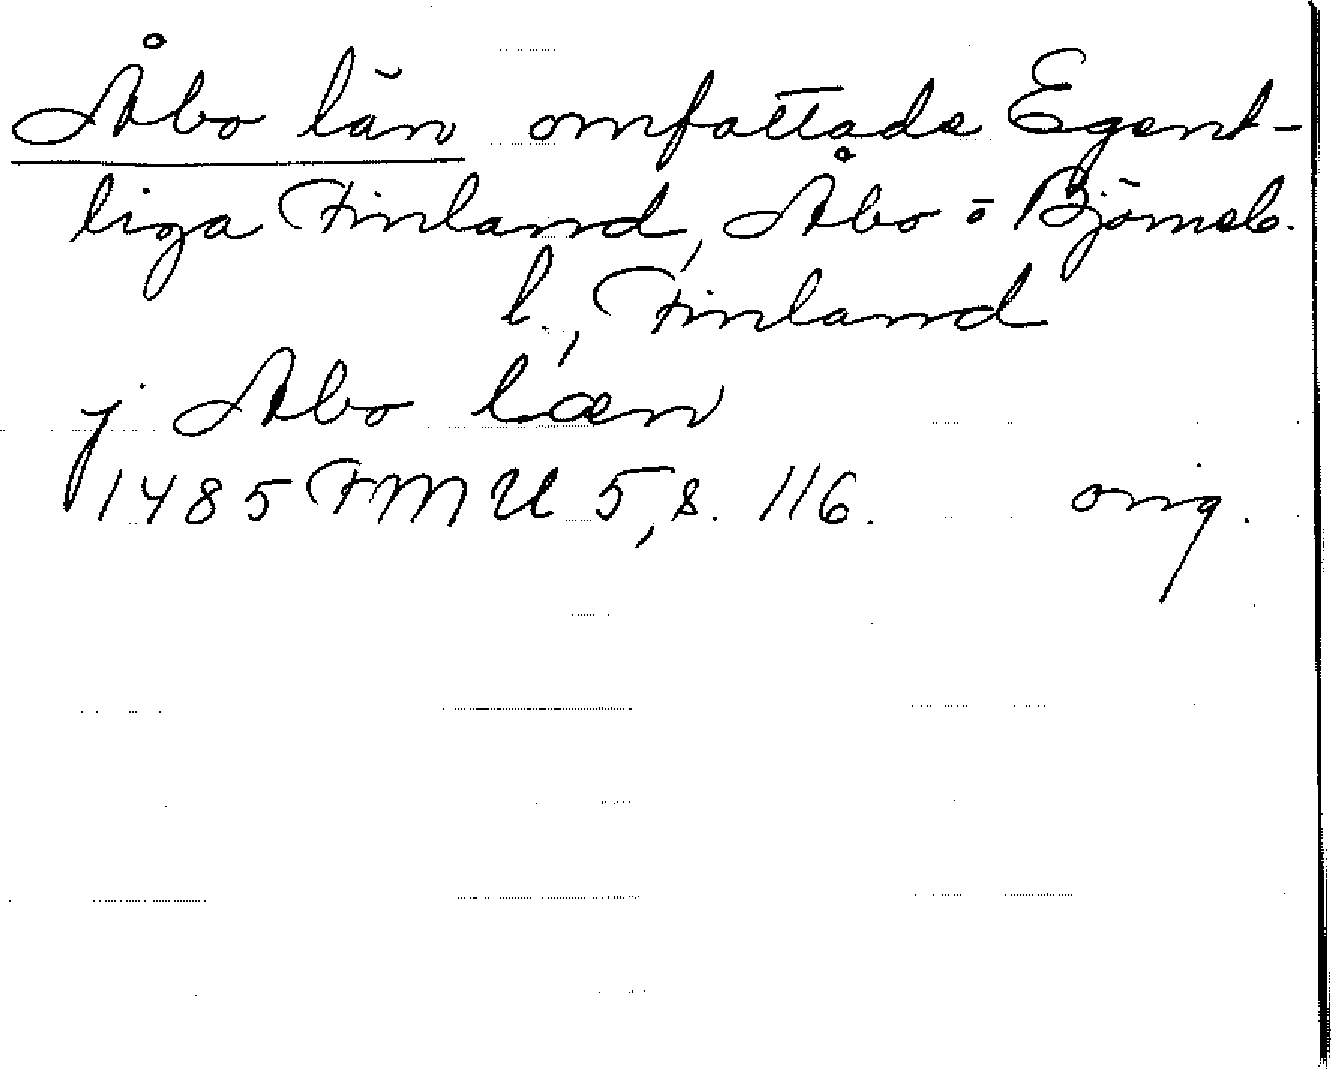 Åbo län omfattade Egent-
liga Finland, Åbo o Björneb.
l., Finland
j Abo læn
1485 FMU 5, s. 116. orig.